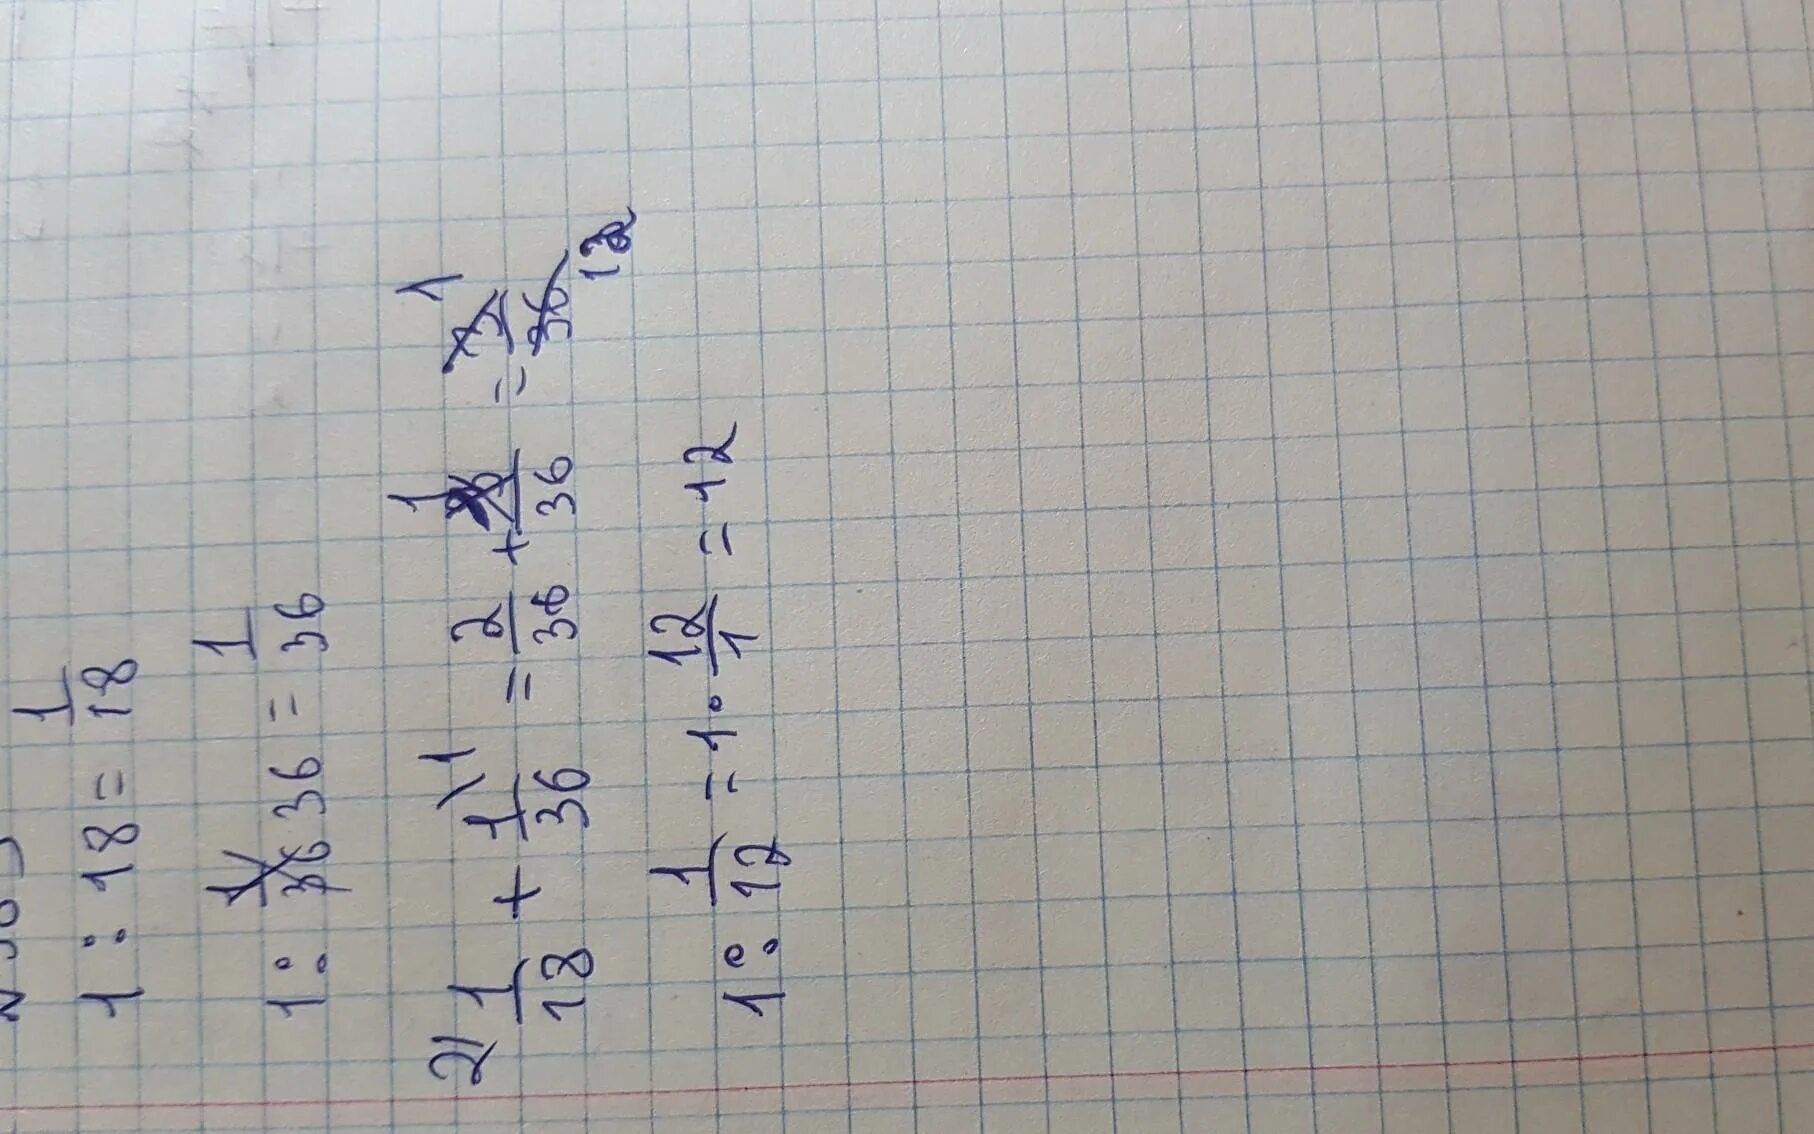 1 : 18 = 1/18
1 : 36 = 1/36
2) 1/18 + 1/36 \1 = 2/36 + 1/36 = 3/36 1 12
1 : 1/12 = 1 · 12/1 = 12